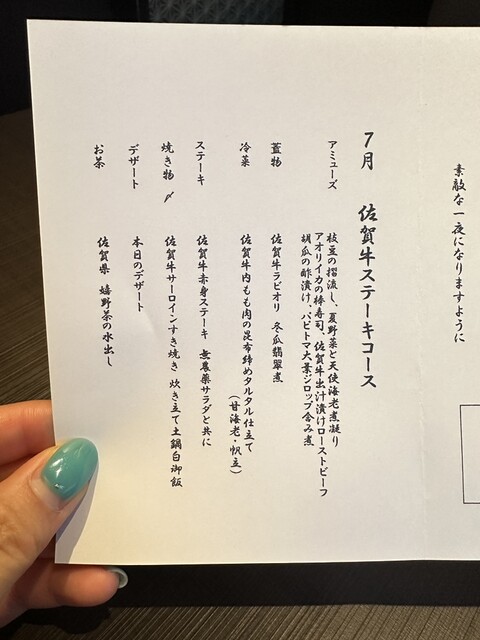 素敵な一夜になりますように
7月 佐賀牛ステーキコース
アミューズ
枝豆の摺流し、夏野菜と天使海老煮凝り
アオリイカの棒寿司、佐賀牛出汁漬けローストビーフ
胡瓜の酢漬け、パピトマ大葉シロップ含み煮
蓋物 佐賀牛ラビオリ 冬瓜翡翠煮
冷菜 佐賀牛内もも肉の昆布締めタルタル仕立て
(甘海老・帆立)
ステーキ 佐賀牛赤身ステーキ 無農薬サラダと共に
焼き物〆 佐賀牛サーロインすき焼き 炊き立て土鍋白御飯
デザート 本日のデザート
お茶 佐賀県 嬉野茶の水出し